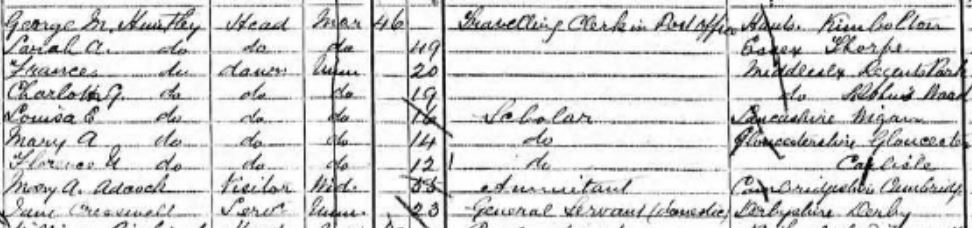 George M. Huntley Head Mar 46 Travelling Clerk in Post Office Hunts Kimbolton
Sarah A. do do do 49 Essex Thorpe
Frances do daur Unm 20 Middlesex Regents Park
Charlotte J. do do do 19 do St John's Wood
Louisa E do do do 16 Scholar Lancashire Wigan
Mary A do do do 14 do Gloucestershire Gloucester
Florence do do do 12 do Carlisle
Mary A. Adcock Visitor Wid. Annuitant Cambridgeshire Cambridge
Jane Cresswell Serv Unm 23 General Servant (domestic) Derbyshire Derby